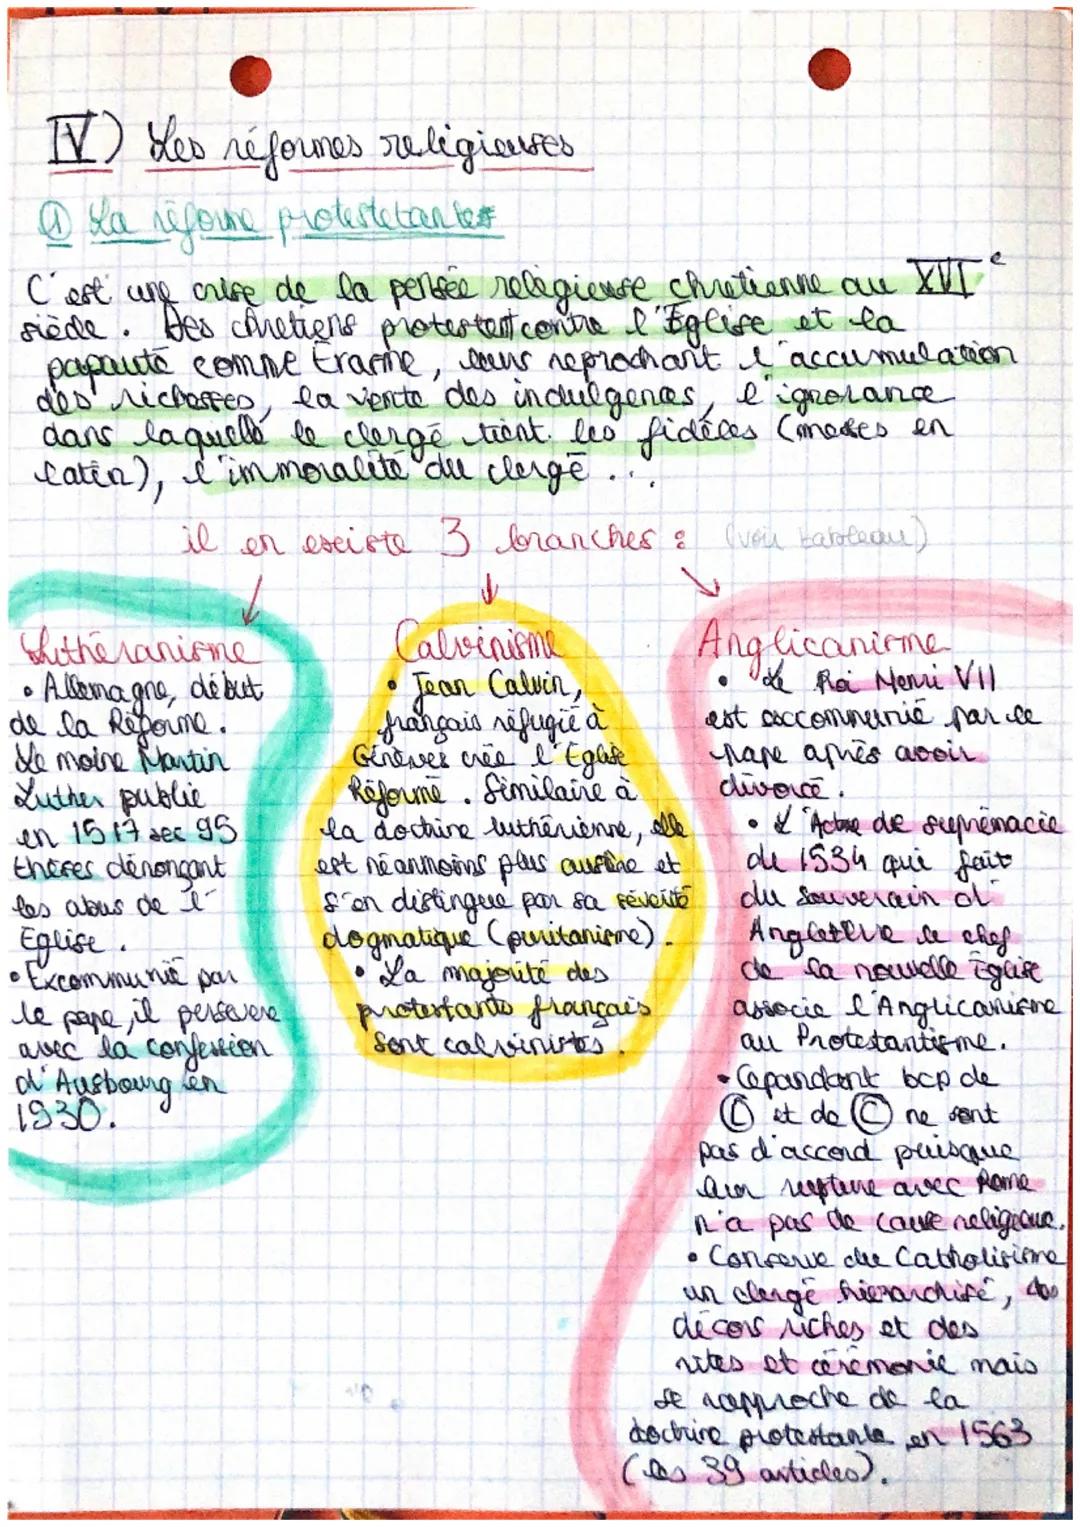 IV) Les réformes religieuses
① La réforme protestetantes
C'est une crise de la pensée religieuse chrétienne au XVIe
siècle. Des chrétiens protestent contre l'Église et la
papauté comme Érasme, leurs reprochant l'accumulation
des richesses, la vente des indulgences, l'ignorance
dans laquelle le clergé tient les fidèles (messes en
latin), l'immoralité du clergé ...
il en existe 3 branches : (voir tableau)
Luthéranisme
• Allemagne, début
de la Réforme.
Le moine Martin
Luther publie
en 1517 sec 95
thèses dénonçant
les abus de l'
Église.
• Excommunié par
le pape, il persévère
avec la confession
d'Ausbourg en
1930.
Calvinisme
• Jean Calvin,
français réfugié à
Génèves crée l'Église
Réformé. Similaire à
la doctrine luthérienne, elle
est néanmoins plus austère et
s'en distingue par sa sévérité
dogmatique (puritanisme).
• La majorité des
protestants français
sont calvinistes.
Anglicanisme
• Le Roi Henri VII
est excommunié par le
pape après avoir
divorcé.
• L'Acte de suprématie
de 1534 qui fait
du Souverain d'
Angleterre le chef
de la nouvelle Église
associe l'Anglicanisme
au Protestantisme.
• Cependant bcp de
Ⓛ et de Ⓒ ne sont
pas d'accord puisque
leur rupture avec Rome
n'a pas de cause religieuse.
• Conserve du Catholisisme
un clergé hiérarchisé, des
décors riches et des
rites et cérémonie mais
se rapproche de la
doctrine protestante en 1563
(les 39 articles).